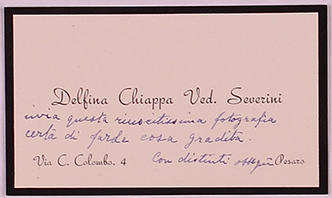 Delfina Chiappa Ved. Severini
invia questa riuscitissima fotografia
certa di farle cosa gradita.
Via C. Colombo. 4 Con distinti ossequi Pesaro